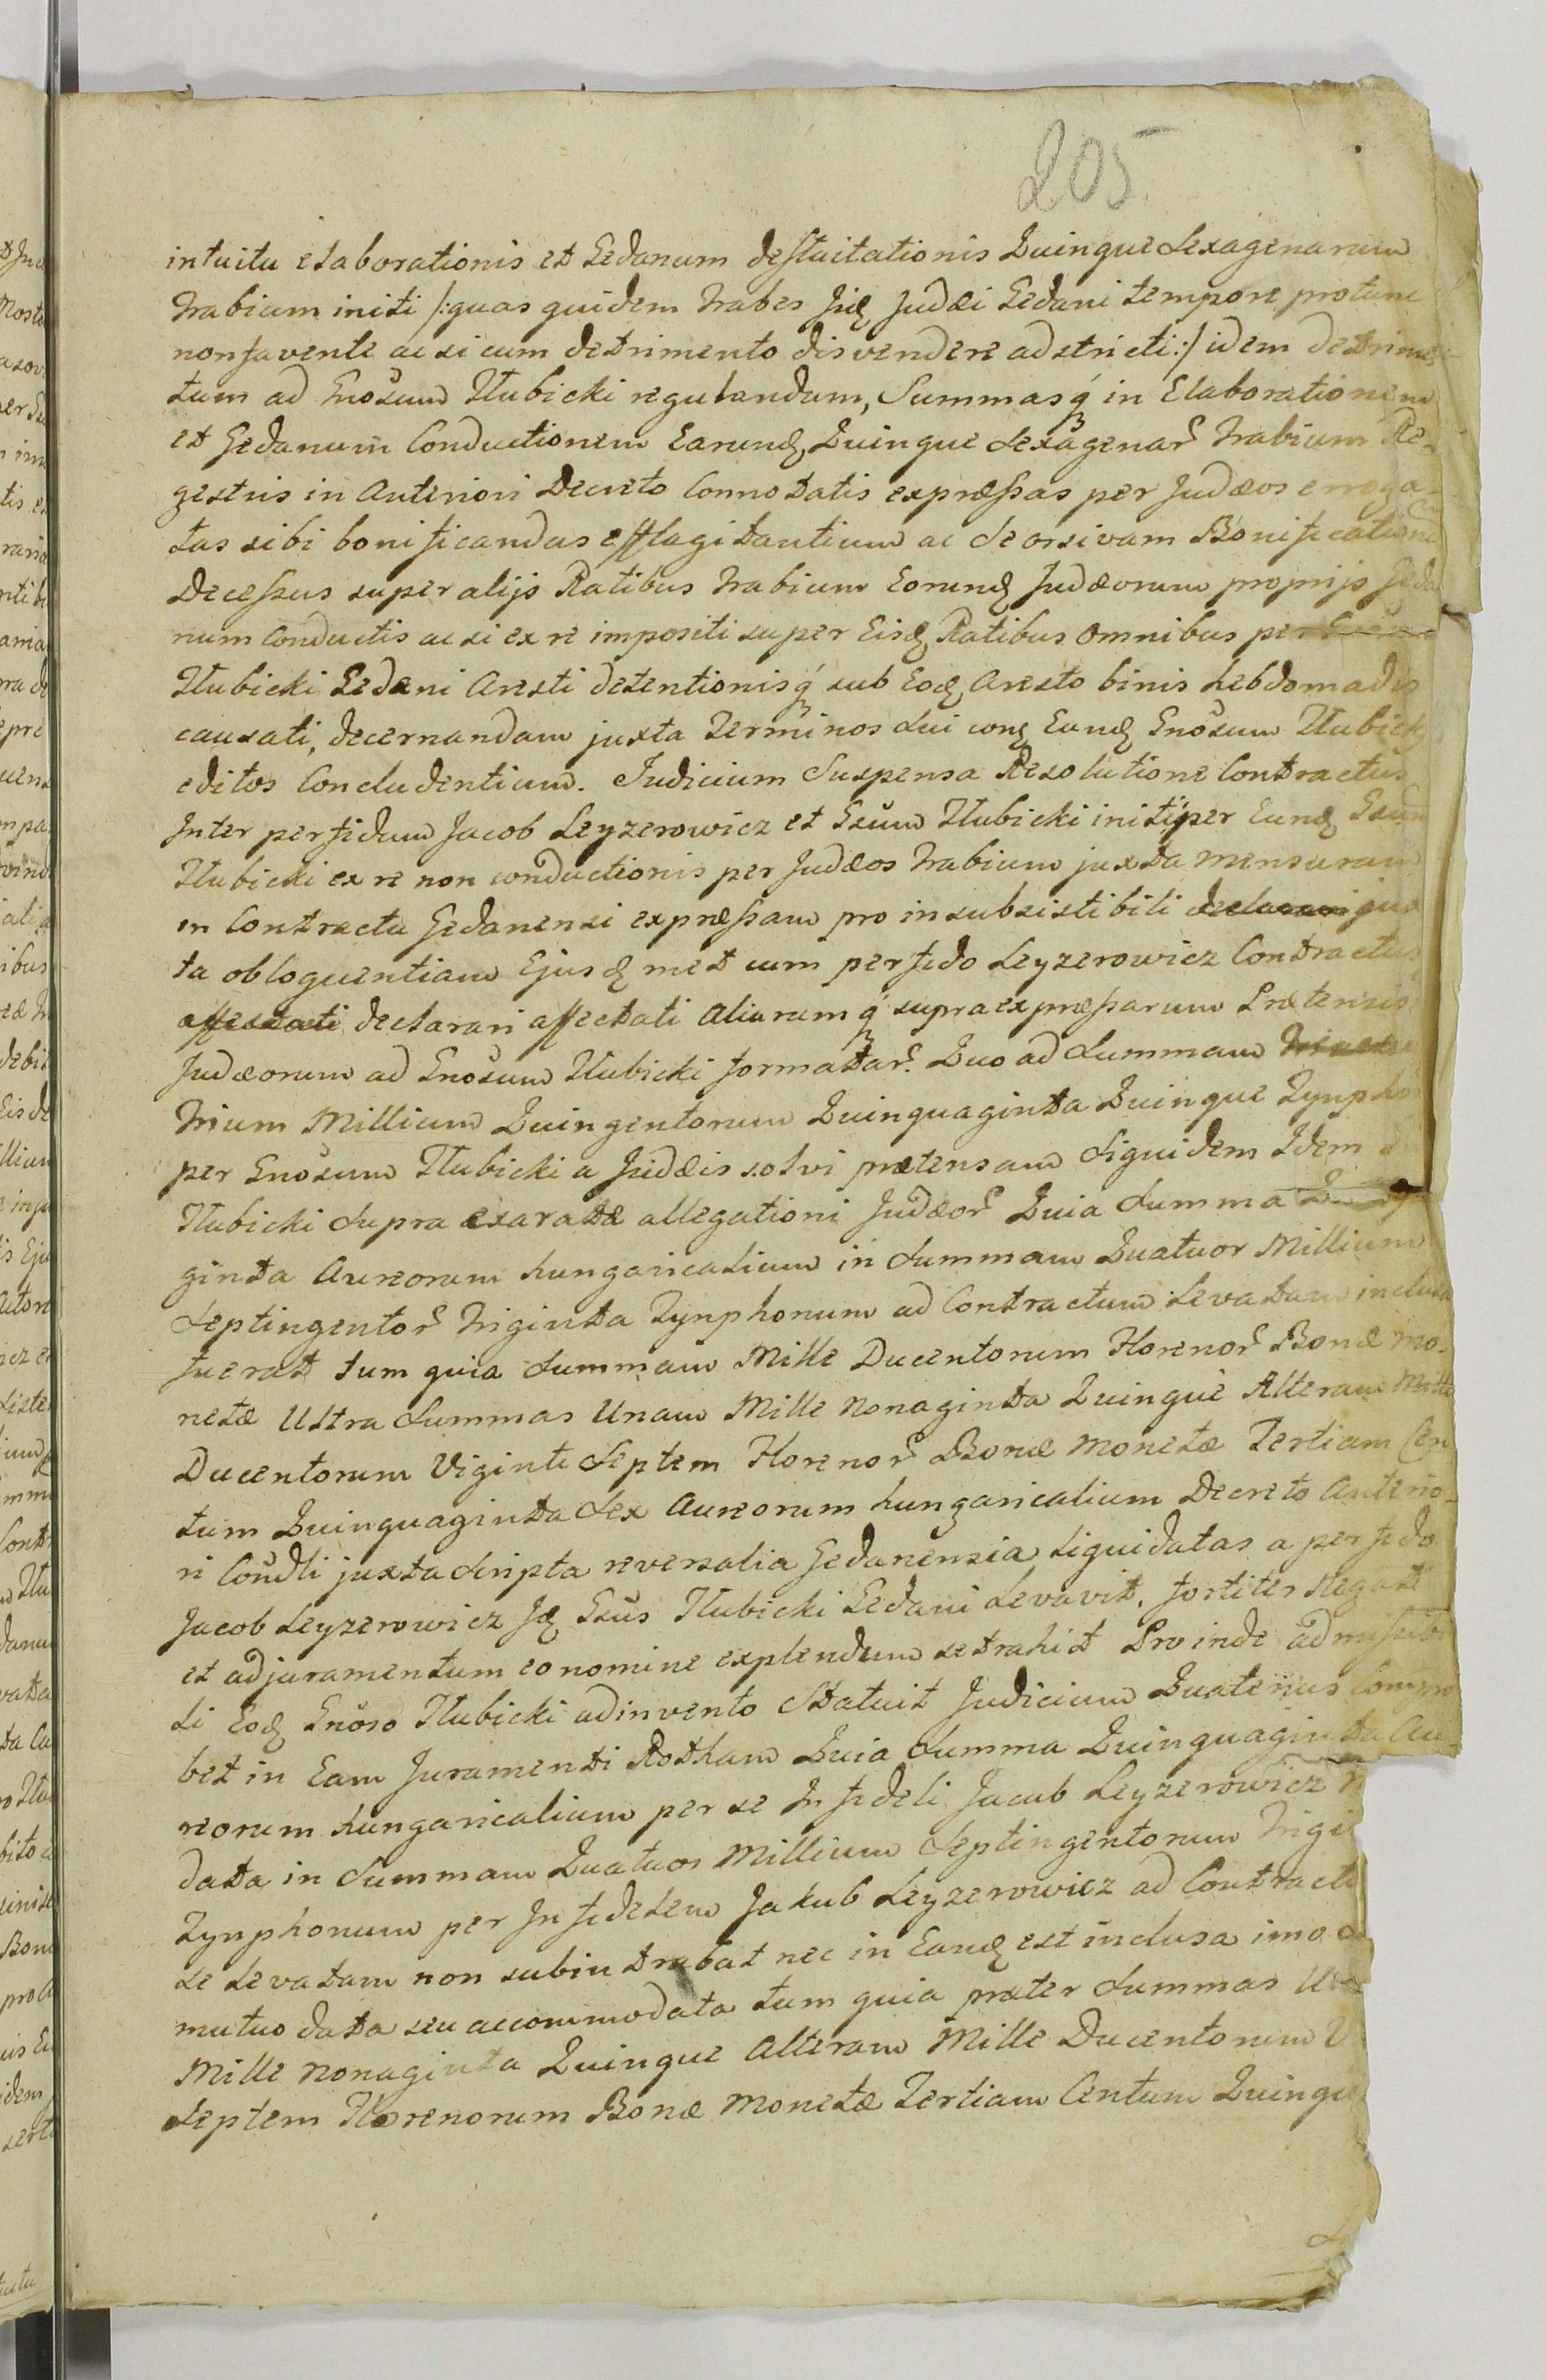 205
intuitu elaborationis et Gedanum defluitationis Quinque Sexagenarum
trabium initi /:quas quidem trabes Iidē Judæi Gedani tempore protunc
non favente ac si cum detrimento disvendere adstricti:/ idem detrimen
tum ad Gnōsum Hłubicki regulandum, Summasq́ in Elaborationem
et Gedanum Conductionem Earundē Quinque Sexagenar̃ trabium Re-
gestris in Anteriori Decreto Connotatis expræssas per Judæos erroga-
tas sibi bonificandas efflagitantium ac Seorsivam Bonificationē
Decessus super alijs Ratibus trabium Eorundē Judæorum proprijs Geda
num Conductis ac si ex re impositi super Eisdē Ratibus Omnibus per
Hłubicki Gedani Aresti detentionisq́ sub Eodē Aresto binis hebdomadis
causati, decernandam juxta Terminos Sui conē Eundē Gnōsum Hłubicki
editos Concludentium. Judicium Suspensa Resolutione Contractus
Inter perfidum Jacob Leyzerowicz et Gsum̃ Hłubicki initi per Eundē Gsum̃
Hłubicki ex re non conductionis per Judæos trabium juxta mensuram
in Contractu Gedanensi expræssam pro insubsistibili declarari jux
ta obloquentiam Ejusdē met cum perfido Leyzerowicz Contractus
affectati declarari affectati Aliarumq́ supra expræssarum Prætensio
Judæorum ad Gnōsum Hłubicki formatar̃. Quo ad Summam
trium Millium Quingentorum Quinquaginta Quinque Tynpho
per Gnōsum Hłubicki a Judæis solvi prætensam Siquidem Idem
Hłubicki Supra exaratæ allegationi Judæor̃ Quia Summa
ginta Aureorum hungaricalium in Summam Quatuor Millium
Septingentor̃ triginta Tynphonum ad Contractum Levatam inclusa
fuerat tum quia Summam Mille Ducentorum Florenor̃ Bonæ mo-
netæ Ultra Summas Unam Mille Nonaginta Quinque Alteram Mille
Ducentorum Viginti Septem Florenor̃ Bonæ monetæ Tertiam Cen
tum Quinquaginta Sex Aureorum hungaricalium Decreto Anterio-
ri Conđli juxta Scripta reversalia Gedanensia liquidatas a perfido
Jacob Leyzerowicz Idē Gsūs Hłubicki Gedani Levavit, fortiter Negat
et ad juramentum eo nomine explendum se trahit Proinde admissibi
li Eodē Gnōso Hłubicki adinvento Statuit Judicium Quatenus Compro
bet in Eam Juramenti Rotham Quia Summa Quinquaginta Au-
reorum hungaricalium per se Infideli Jacub Leyzerowicz
data in Summam Quatuor Millium Septingentorum trigi
Tynphonum per Infidelem Jakub Leyzerowicz ad Contractu
se Levatam non subintrabat nec in Eandē est inclusa imo
mutuo data seu accommodata tum quia præter Summas
Mille nonaginta Quinque Alteram Mille Ducentorum
Septem Florenorum Bonæ monetæ Tertiam Centum Quinqu